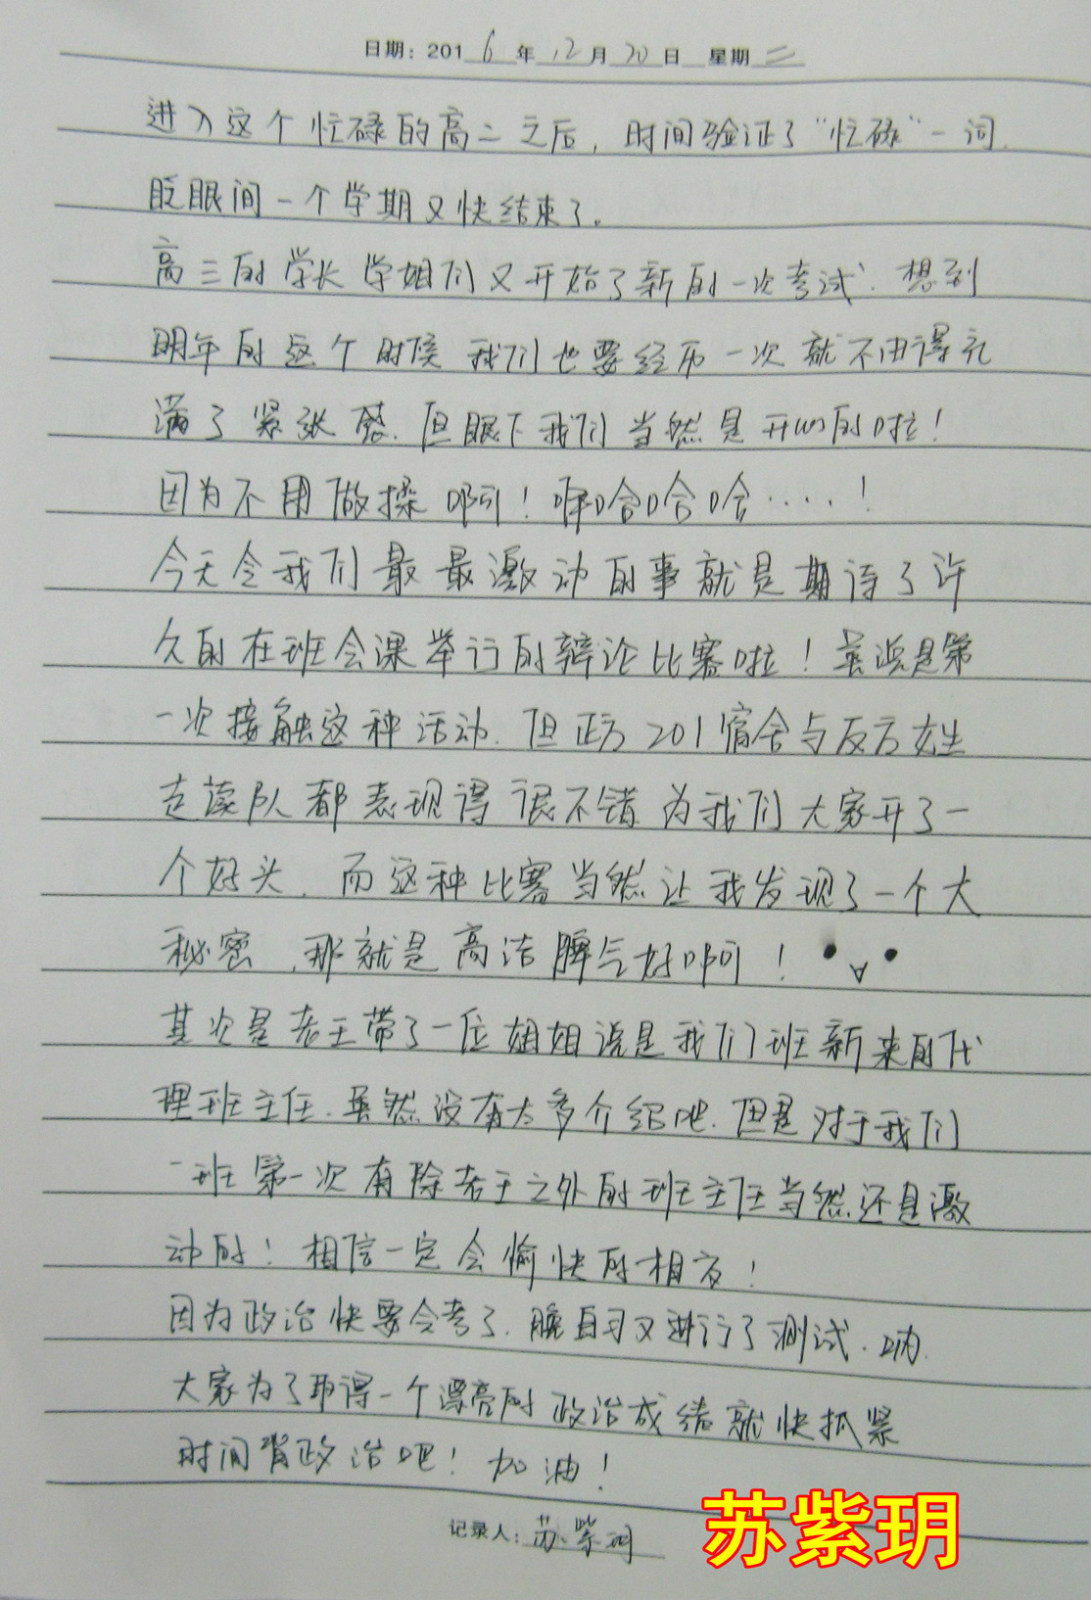 日期：2016年12月20日 星期二
进入这个忙碌的高二之后，时间验证了“忙碌”一词.
眨眼间一个学期又快结束了。
高三的学长学姐们又开始了新的一次考试.想到
明年的这个时候我们也要经历一次就不由得充
满了紧张感.但眼下我们当然是开心的啦！
因为不用做操啊！哈哈哈....！
今天令我们最最激动的事就是期待了许
久的在班会课举行的辩论比赛啦！虽说是第
一次接触这种活动.但正方201宿舍与反方女生
走读队都表现得很不错为我们大家开了一
个好头.而这种比赛当然让我发现了一个大
秘密,那就是高洁脾气好啊！
其次是老王带了一位姐姐说是我们班新来的代
理班主任.虽然没有太多介绍吧.但是对于我们
一班第一次有除老王之外的班主任当然还是激
动的！相信一定会愉快的相友！
因为政治快要会考了.晚自习又进行了测试.
大家为了取得一个漂亮的政治成绩就快抓紧
时间背政治吧！加油！
记录人：苏紫玥
苏紫玥